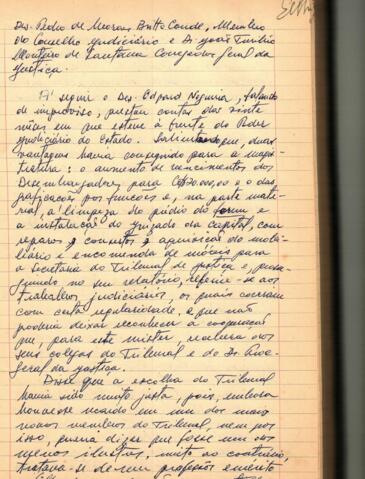 Des. Pedro de Moraes Britto Conde, Membro
do Conselho Judiciário e Dr. João Turibio
Monteiro de Santana Corregedor Geral da
Justiça.
A seguir o Des. Edgard Nogueira, falando
de improviso, prestou contas dos vinte
meses em que esteve à frente do Poder
Judiciário do Estado. Salientando que, duas
vantagens havia conseguido para a magis-
tratura: o aumento de vencimentos dos
Desembargadores para Cr$20.000,00 e o das
gratificações por funções e, na parte mate-
rial, a limpeza do prédio do forum e
a instalação do juizado da Capital, com
reparos, consertos e aquisição do mobi-
liário e encomenda de móveis para
a Secretaria do Tribunal de Justiça e, prosse-
guindo no seu relatório, refere-se aos
trabalhos judiciários, os quais correram
com certa regularidade, e que não
poderia deixar reconhecer a cooperação
que, para este mister, recebera dos
seus colegas do Tribunal e do Dr. Proc.
Geral da Justiça.
Disse que a escolha do Tribunal
havia sido muito justa, pois, embora
houvesse recaido em um dos mais
novos membros do Tribunal, nem por
isso, queria dizer que fosse um dos
menos ilustres, muito ao contrário,
tratava-se de um professor emérito